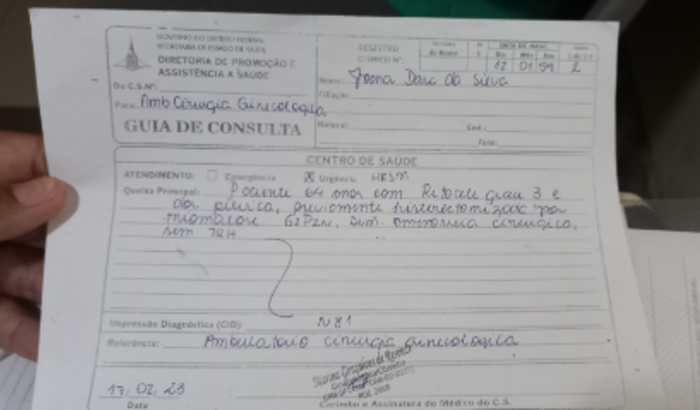 GOVERNO DO DISTRITO FEDERAL
SECRETARIA DE ESTADO DE SAÚDE
DIRETORIA DE PROMOÇÃO E
ASSISTÊNCIA À SAÚDE
Do C.S.Nº:
Para: Amb Cirurgia Ginecologica
GUIA DE CONSULTA
REGISTRO
CLÍNICO Nº:
DATA DE NASC.
Dia Mês Ano
12 01 59
Nome: Joana Darc da Silva
Filiação:
CENTRO DE SAÚDE
ATENDIMENTO: Emergência X Urgência HRSM
Queixa Principal: Paciente 64 anos com Retocele grau 3 e
dor pélvica, previamente histerectomizada por
miomatose G2P2N, sem
sem TRH
Impressão Diagnóstica (CID): N81
Referência: Ambulatorio cirurgia ginecologica
17, 02, 23
Data
Carimbo e Assinatura do Médico do C.S.